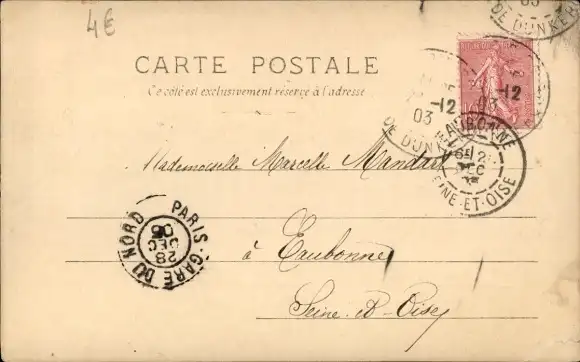 4€
03
DE DUNKER
CARTE POSTALE
Ce côté est exclusivement réservé à l'adresse
-12
03
DE DUNK
-12
03
EAUBONNE
SEINE-ET-OISE
12
DEC
Mademoiselle Marcelle
PARIS-GARE DU NORD
28
DEC
05
à Eaubonne
Seine-et-Oise